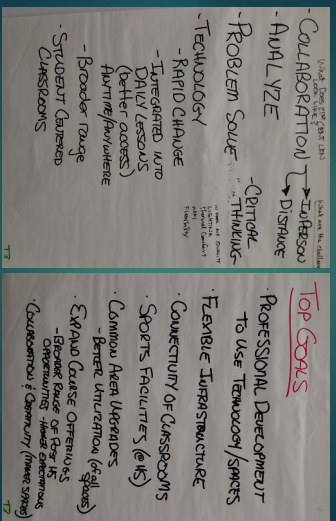 What Does
look like?
What are the
- COLLABORATION → INPERSON
→ DISTANCE
- ANALYZE
- PROBLEM SOLVE
- CRITICAL
THINKING
- TECHNOLOGY
- RAPID CHANGE
- INTEGRATED INTO
DAILY LESSONS
(better access)
ANYTIME/ANYWHERE
- Broader range
• STUDENT CENTERED
CLASSROOMS
Thermal Comfort
Flexibility
T3
TOP GOALS
• PROFESSIONAL DEVELOPMENT
TO USE TECHNOLOGY/SPACES
• FLEXIBLE INFRASTRUCTURE
• CONNECTIVITY OF CLASSROOMS
• SPORTS FACILITIES (@HS)
• COMMON AREA UPGRADES
- BETTER UTILIZATION (of all
spaces)
• EXPAND COURSE OFFERINGS
- BROADER RANGE OF POST HS
OPPORTUNITIES - HIGHER EXPECTATIONS
• COLLABORATION & CREATIVITY (MAKER SPACES)
T3